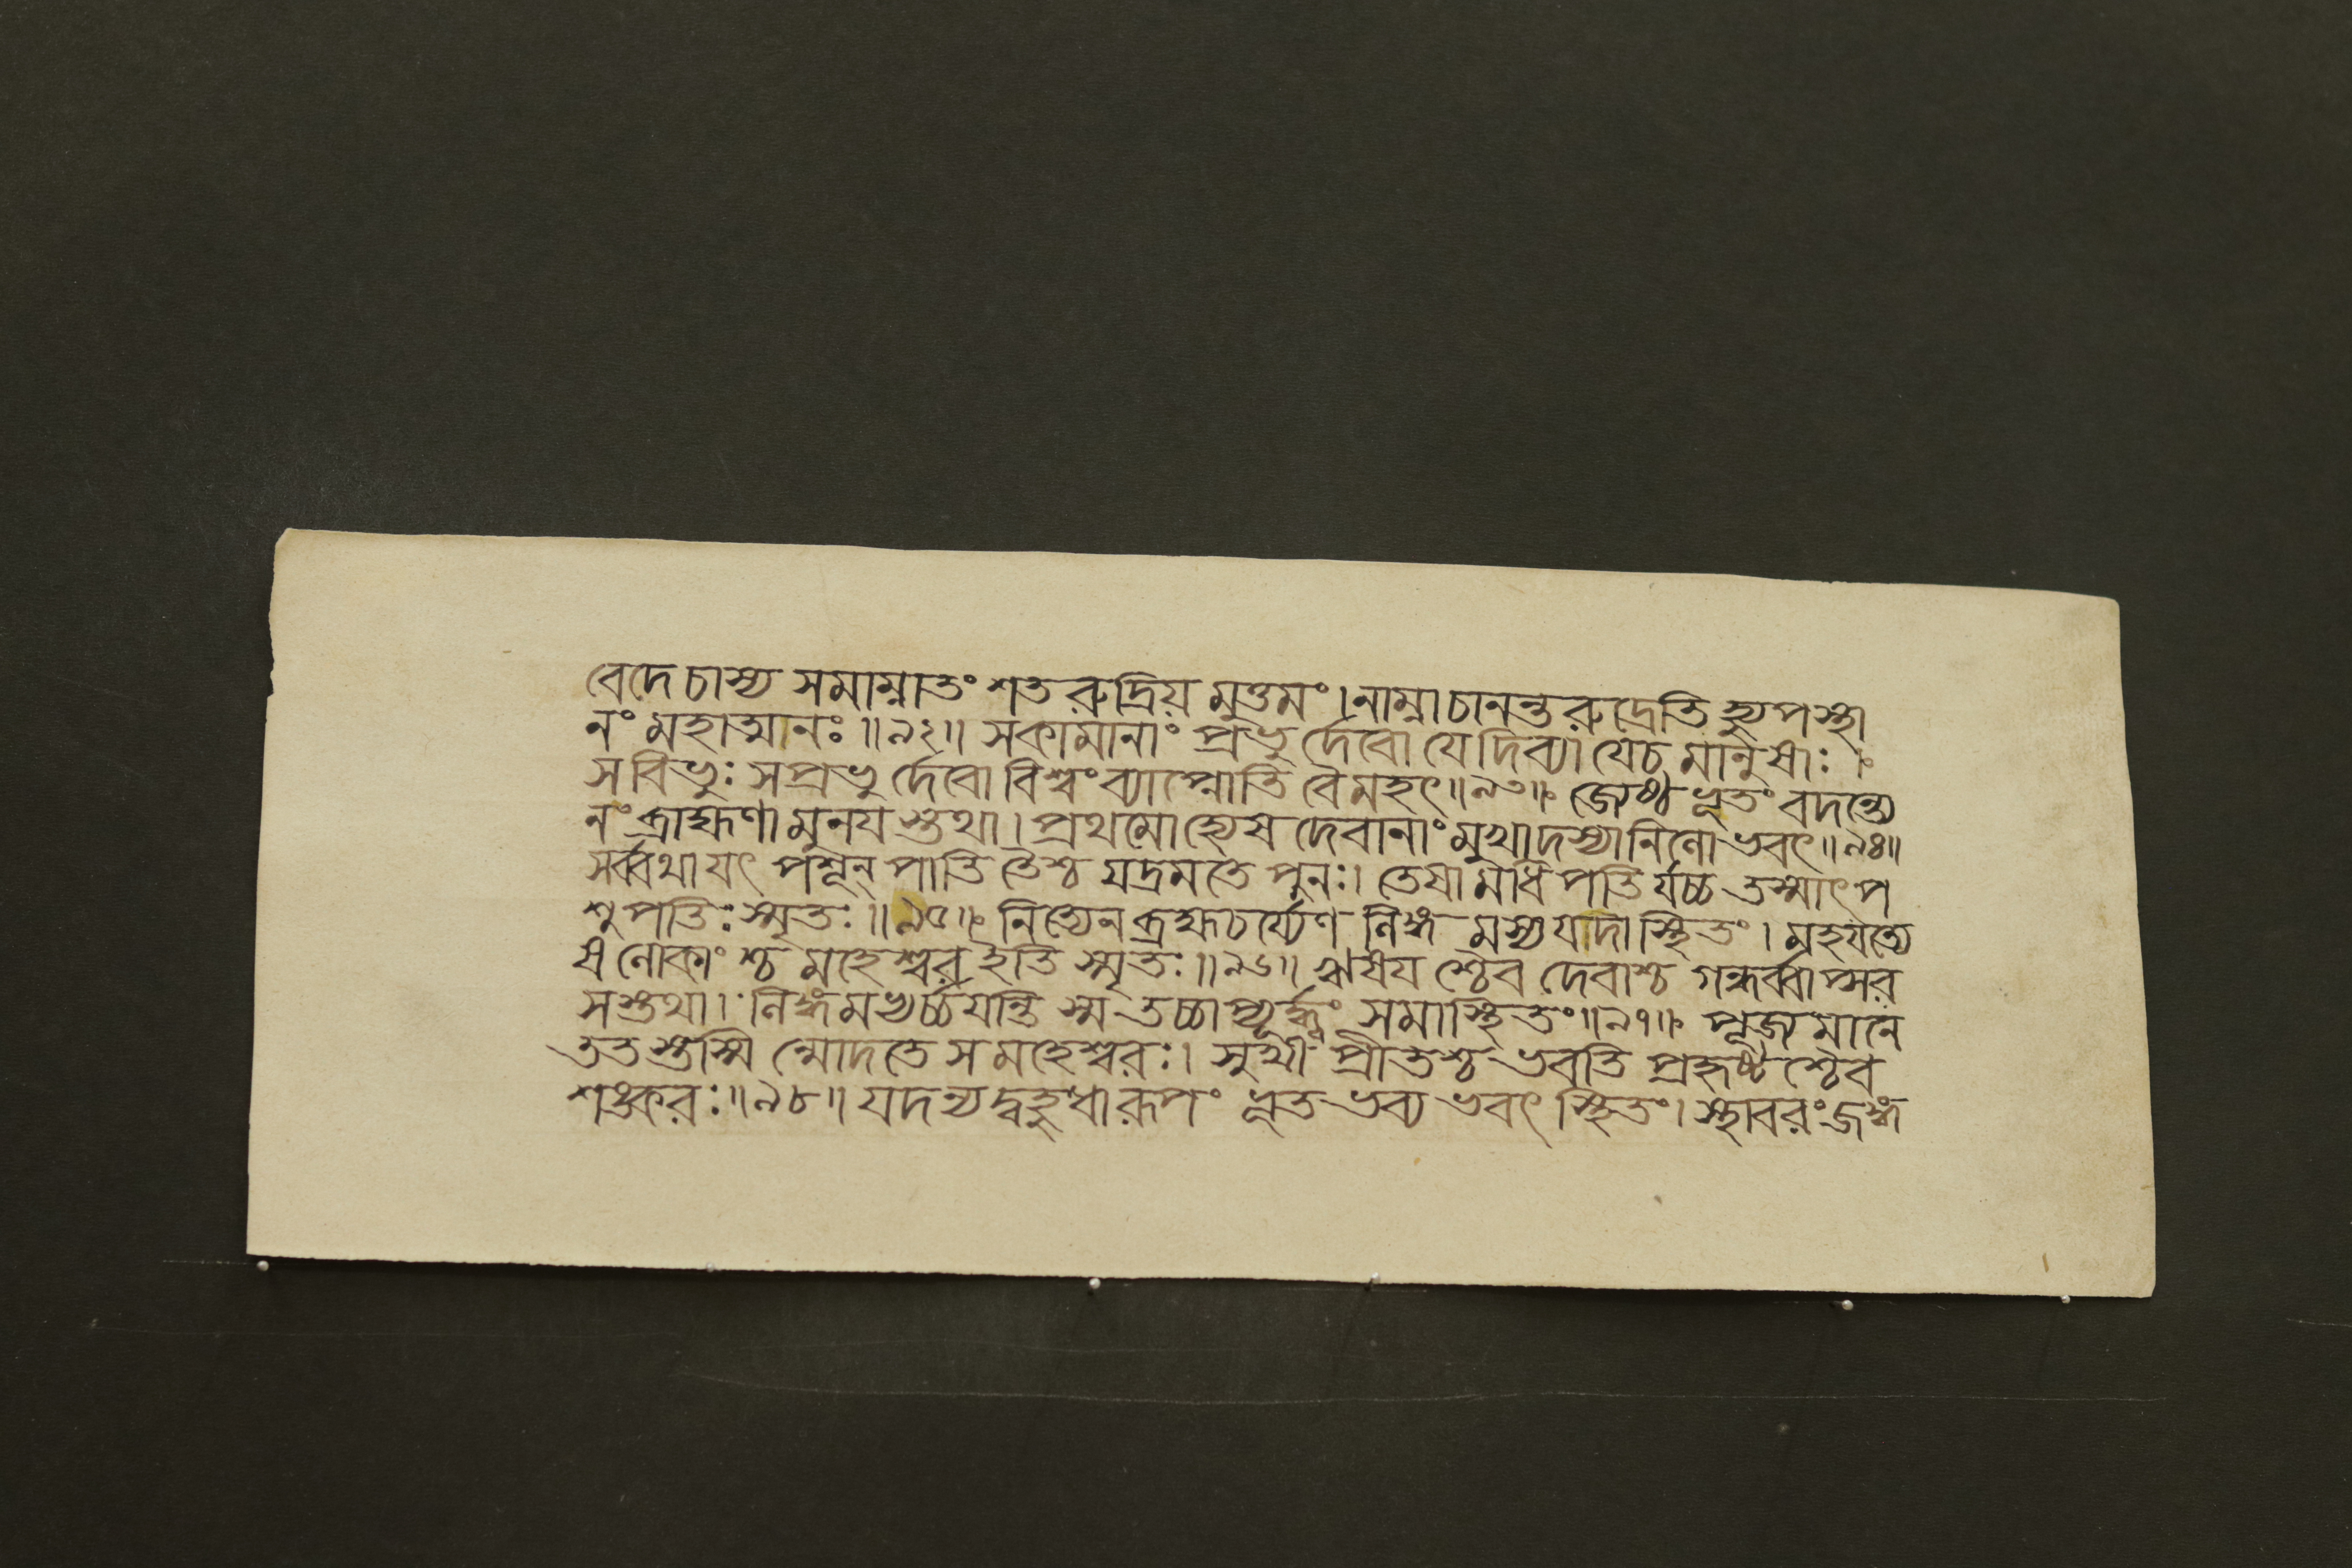 বেদে চাস্য সমাম্নাতং শতরুদ্রিয় মুত্তমং । নাম্না চানন্তরুদ্রেতি হ্যুপস্থা
নং মহাত্মানঃ ॥৯২॥ সকামানাং প্রভু র্দেবো যে দিব্যা যেচ মানুষাঃ ।
স বিভুঃ সপ্রভু র্দেবো বিশ্বং ব্যাপ্নোতি বৈমহৎ ॥৯৩॥ জ্যেষ্ঠ ভূতং বদন্ত্যে
নং ব্রাহ্মণা মুনয স্তথা । প্রথমোহ্যেষ দেবানাং মুখাদস্যানিলো ভবৎ ॥৯৪॥
সর্ব্বথা যৎ পশূন্ পাতি তৈশ্চ যদ্রমতে পুনঃ । তেষামধিপতি র্যচ্চ তস্মাৎ প
শুপতিঃ স্মৃতঃ ॥৯৫॥ নিত্যেন ব্রহ্মচর্য্যেণ লিঙ্গ মস্য যদা স্থিতং । মহযত্যে
ষ লোকাং শ্চ মহেশ্বর ইতি স্মৃতঃ ॥৯৬॥ ঋষয শ্চৈব দেবাশ্চ গন্ধর্ব্বাপ্সর
সস্তথা । লিঙ্গমভ্যর্চ্চযন্তি স্ম তচ্চাপ্যূর্দ্ধ্বং সমাস্থিতং ॥৯৭॥ পূজমানে
ততস্তস্মি ন্মোদতে স মহেশ্বরঃ । সুখী প্রীতশ্চ ভবতি প্রহৃষ্ট শ্চৈব
শঙ্করঃ ॥৯৮॥ যদন্য দ্বহুধা রূপং ভূত ভব্য ভবৎ স্থিতং । স্থাবরং জঙ্গ